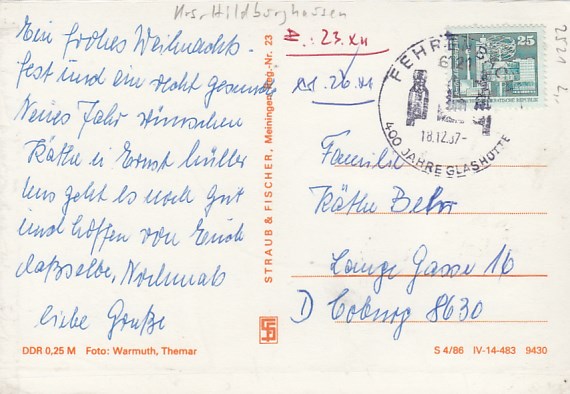 Krs. Hildburghausen
Ein frohes Weihnachts-
fest und ein recht gesundes
Neues Jahr wünschen
Käthe u Ernst Müller
Uns geht es noch gut
und hoffen von Euch
daßselbe, Nochmals
liebe Grüße
DDR 0,25 M Foto: Warmuth, Themar
STRAUB & FISCHER, Meiningen Reg.-Nr. 23
A.: 23. XII
26.
FEHREN
6121
18.12.87-
400 JAHRE GLASHÜTTE
25
Familie
Käthe Behr
Lange Gasse 16
D Coburg 8630
S 4/86 IV-14-483 9430